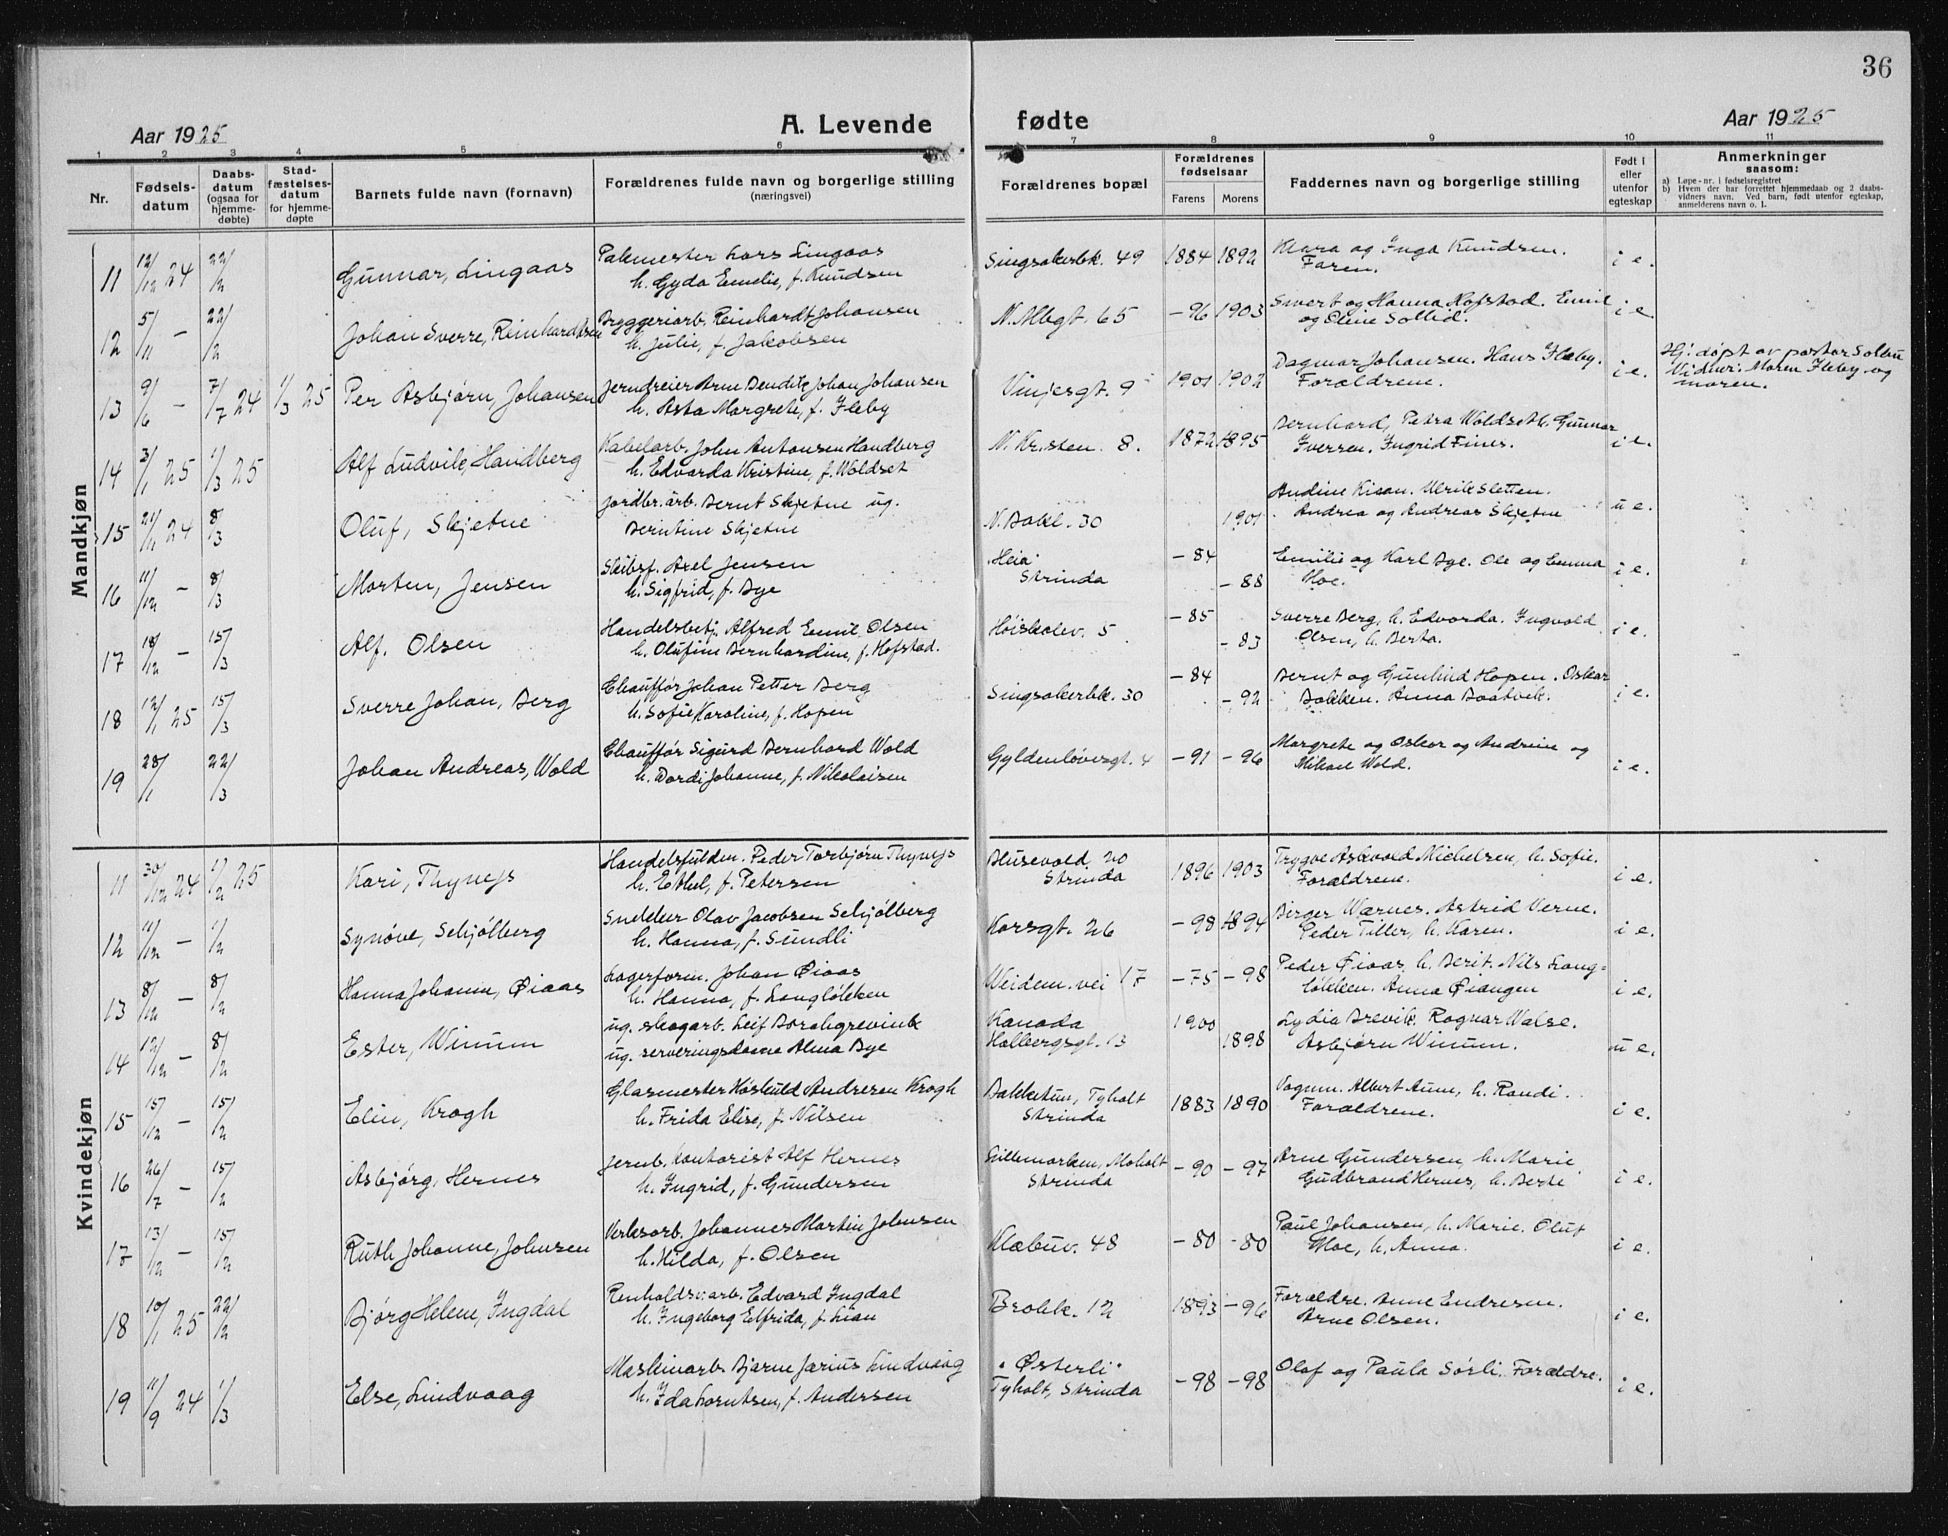 36
Aar 1925 A. Levende fødte Aar 1925
1 2 3 4 5 6 7 8 9 10 11
Nr. Fødselsdatum Daabsdatum (ogsaa for hjemmedøbte) Stadfæstelsesdatum for hjemmedøpte Barnets fulde navn (fornavn) Forældrenes fulde navn og borgerlige stilling (næringsvei) Forældrenes bopæl Forældrenes fødselsaar Farens Morens Faddernes navn og borgerlige stilling Født i eller utenfor egteskap Anmerkninger saasom:
a) Løpe-nr. i fødselsregistret
b) Hvem der har forrettet hjemmedaab og 2 daabsvidners navn. Ved barn, født utenfor egteskap, anmelderens navn o. l.
Mandkjøn
11 12/12 24 22/2 Gunnar, Lingaas Lars Lingaas Singsakerbk. 49 1884 1892 Klara og Inga Knudsen. i e.
h. Gyda Emelie, f. Knudsen Faren.
12 5/11 — 22/2 Johan Sverre, Reinhardtsen Bryggeriarb. Reinhardt Johansen N. Albgt. 65 —96 1903 Sivert og Hanna Hofstad. Emil i e
h. Julie, f. Jakobsen og Oline Sollid.
13 9/6 — 7/7 24 1/3 25 Per Asbjørn, Johansen Jerndreier Arne Bendik Johan Johansen Vinjesgt. 9 1901 1902 Dagmar Johansen. Hans Fleby. i e. Hj. døpt av pastor Solbu
h. Asta Margrete, f. Fleby Forældrene. Vidner: Maren Fleby og
moren.
14 3/1 25 1/3 25 Alf Ludvik, Handberg Kabelarb. John Antonsen Handberg N. Kr.sten. 8. 1872 1895 Bernhard, Petra Woldseth. Gunnar i e.
h. Edvarda Kristine, f. Woldset Iversen. Ingrid Fines.
15 21/11 24 8/3 Oluf, Skjetne Jordbr. arb. Bernt Skjetne ug. N. Bakl. 30 1901 Andine Ulrik Sletten. u e.
Berntine Skjetne Andrea og Andreas Skjetne
16 11/12 — 8/3 Morten, Jensen Skibsf. Axel Jensen Heia —84 Emilie og Karl Bye. Ole og Emma i e.
h. Sigfrid, f. Bye Strinda —88 Moe.
17 18/12 — 15/3 Alf. Olsen Handelsbetj. Alfred Emil Olsen Høiskolev. 5 —85 Sverre Berg, h. Edvarda. Ingvald i e.
h. Olufine Bernhardine, f. Hofstad. —83 Olsen, h. Berta.
18 12/1 25 15/3 Sverre Johan, Berg Chauffør Johan Petter Berg Singsakerbk. 30 —84 Bernt og Gunhild Hopen. Oskar i e.
h. Sofie Karoline, f. Hopen —92 Bakken. Anna Baatvik.
19 28/1 22/3 Johan Andreas, Wold Chauffør Sigurd Bernhard Wold Gyldenløvesgt. 4 —91 —96 Margrete og Oskar og Andrine og i e.
h. Dordi Johanne, f. Nikolaisen Mikael Wold.
Kvindekjøn
11 30/12 24 1/2 25 Kari, Thyness Handelsfuldm. Peder Torbjørn Thyness Blusevold 20 1896 1903 Trygve Askvold Michelsen, h. Sofie. i e.
h. Ethel, f. Petersen Strinda Forældrene.
12 11/12 — 1/2 Synøve, Schjølberg Snekker Olav Jacobsen Schjølberg Korsgt. 26 —98 1894 Birger Wærnes. Astrid Verne. i e.
h. Hanna, f. Sundli Peder Tiller, h. Karen.
13 8/12 — 8/2 Hanna Johanne, Øiaas Lagerform. Johan Øiaas Weidem. vei 17 —75 —98 Peder Øiaas, h. Berit. Nils Lang= i e.
h. Hanna, f. Langløkken løkken. Anna Øiangen
14 12/12 — 8/2 Ester, Winum ug. skogarb. Leif Borchgrevink Kanada 1900 Lydia Brevik. Ragnar Walse. u e.
ug. serveringsdame Alma Bye Holbergsgt. 13 1898 Asbjørn Winum.
15 15/12 — 15/2 Elin, Krogh Glasmester Høskuld Andresen Krogh Bakketun, Tyholt 1883 1890 Vognm. Albert Aune, h. Randi. i e.
h. Frida Elise, f. Nilsen Strinda Forældrene.
16 26/7 — 15/2 Asbjørg, Hernes Jernb. kontorist Alf Hernes Lillemarken, Moholt —90 —97 Arne Gundersen, h. Marie. i e.
h. Ingrid, f. Gundersen Strinda Gudbrand Hernes, h. Berte
17 13/12 — 15/2 Ruth Johanne, Johnsen Verksarb. Johannes Martin Johnsen Klæbuv. 48 —80 —80 Paul Johansen, h. Marie. Oluf i e.
h. Hilda, f. Olsen Moe, h. Anna.
18 10/1 25 22/2 Bjørg Helene, Ingdal Renholdsv. arb. Edvard Ingdal Brobk. 12 1893 —96 Forældre. Anne Endresen. i e.
h. Ingeborg Elfrida, f. Lian Arne Olsen.
19 11/9 24 1/3 Else, Lindvaag Maskinarb. Bjarne Jærius Lindvaag "Østerli" —98 —98 Olaf og Paula Sørli. Forældre. i e.
h. Ida Lorntsen, f. Andersen Tyholt, Strinda